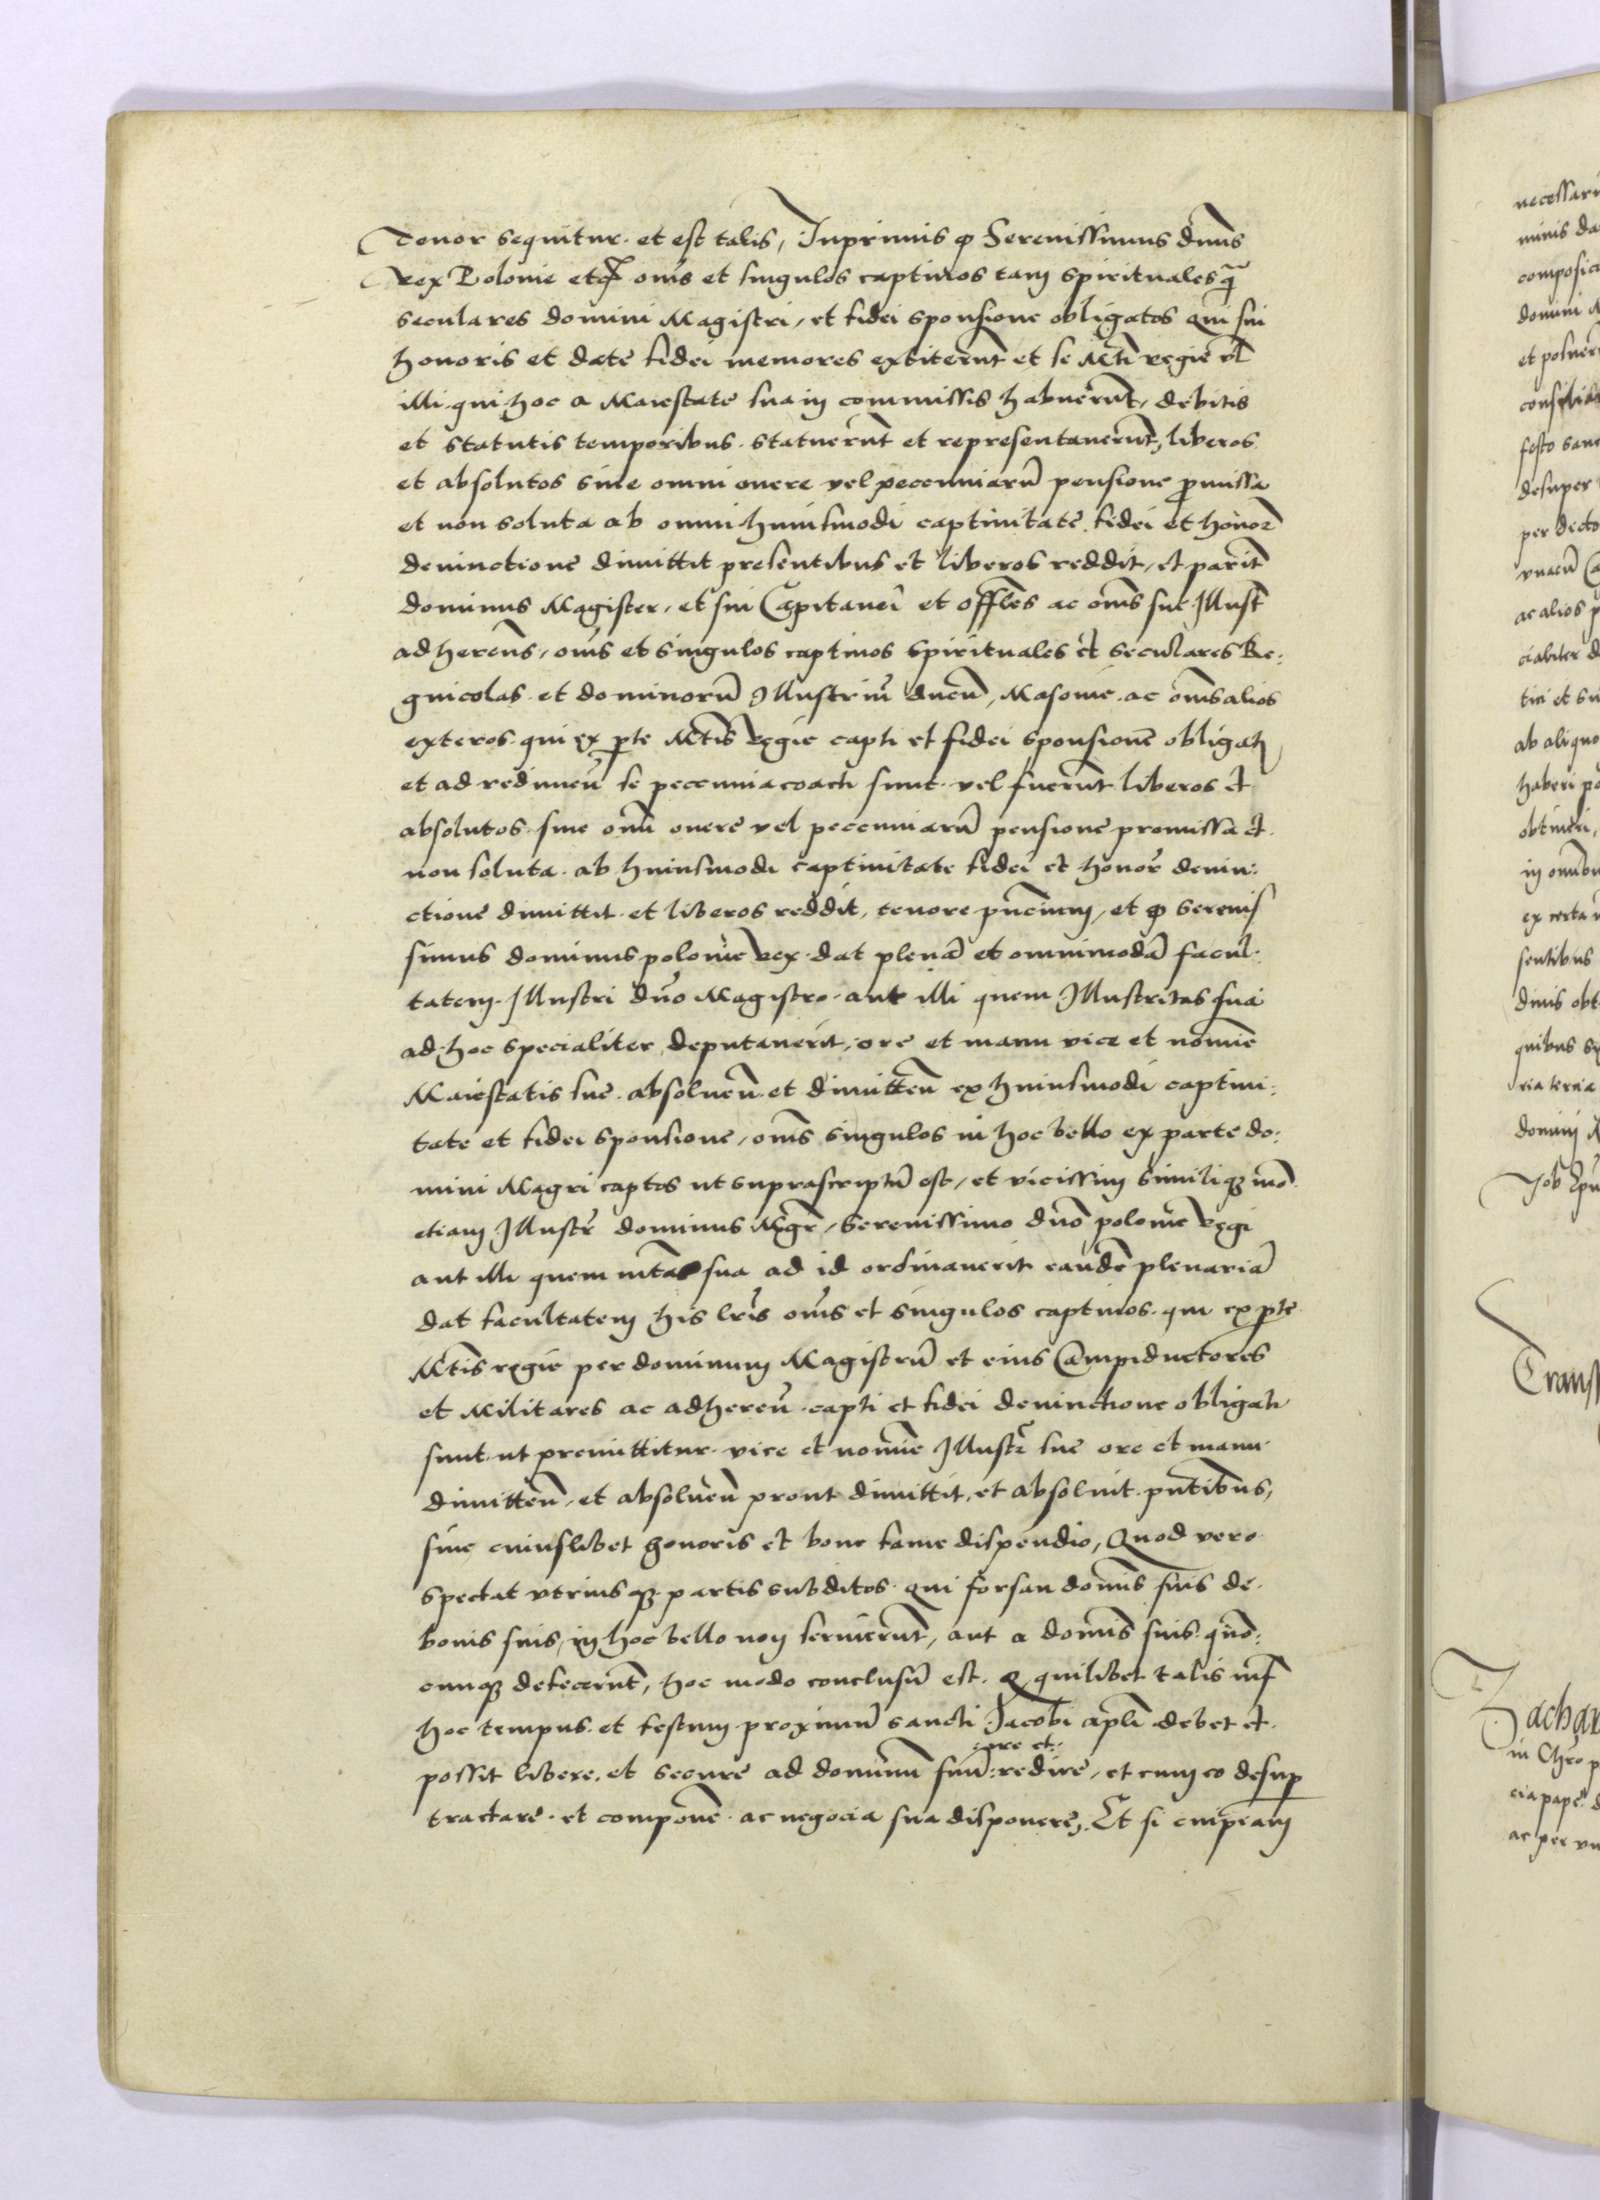 Tenor sequitur et est talis, Inprimis ꝙ Serenissimus dn̄us
Rex Polonie etc̄ om̄s et singulos captiuos tam spirituales q̄
seculares domini Magistri, et fidei sponsione obligatos qui sui
honoris et date fidei memores extiterūt et se Mt̄i regie vl̄
illi qui hoc a Maiestate sua in commissis habuerūt, debitis
et statutis temporibus statuerūt et representauerūt, liberos
et absolutos sine omni onere vel peccuniarū pensione p̄missa
et non soluta ab omni huiusmodi captiuitate fidei et honor̄
deuinctione dimittit presentibus et liberos reddit, et parit̄
dominus Magister, et sui Capitanei et offl̄es ac om̄s sue Illust̄
adheren̄s, om̄s et singulos captiuos spirituales et seculares Re:
gnicolas et dominorū Illustriū ducū, Masouie ac om̄s alios
exteros qui ex p̄te Mt̄is Regie capti et fidei sponsione obligati
et ad redimen̄ se peccunia coacti sunt vel fuerūt liberos et
absolutos sine om̄i onere vel peccuniarū pensione promissa et
non soluta ab huiusmodi captiuitate fidei et honor̄ deuin:
ctione dimittit et liberos reddit, tenore pn̄cium, et ꝙ serenis
simus dominus polonie Rex dat plenā et omnimodā facul:
tatem Illustri dn̄o Magistro aut illi quem Illustritas sua
ad hoc specialiter deputauerit, ore et manu vice et nomīe
Maiestatis sue absoluen̄ et dimitten̄ ex huiusmodi captiui:
tate et fidei sponsione, om̄s singulos in hoc bello ex parte do:
mini Magr̄i captos ut suprascriptū est, et vicissim similiqꝫ mō
etiam Illustr̄ dominus Mgr̄, Serenissimo dn̄o polonie Regi
aut illi quem mt̄as sua ad id ordinauerit eandē plenariā
dat facultatem his lr̄is om̄s et singulos captiuos qui ex p̄te
Mt̄is regie per dominum Magistrū et eius Campiductores
et Militares ac adheren̄ capti et fidei deuinctione obligati
sunt ut premittitur vice et nomīe Illustr̄ sue ore et manu
dimitten̄, et absoluen̄ prout dimittit, et absoluit pn̄tibus,
sine cuiuslibet honoris et bone fame dispendio, Quod vero
spectat vtriusqꝫ partis subditos qui forsan domīs suis de
bonis suis, in hoc bello non seruierūt, aut a domīs suis quō:
cunqꝫ defecerūt, hoc modo conclusū est ꝙ quilibet talis inf̄
hoc tempus et festum proximū sancti Jacobi apl̄i debet et
ore et
possit libere et secure ad dominum suū redire, et cum eo desup̄
tractare et componē ac negocia sua disponere, Et si cuipiam